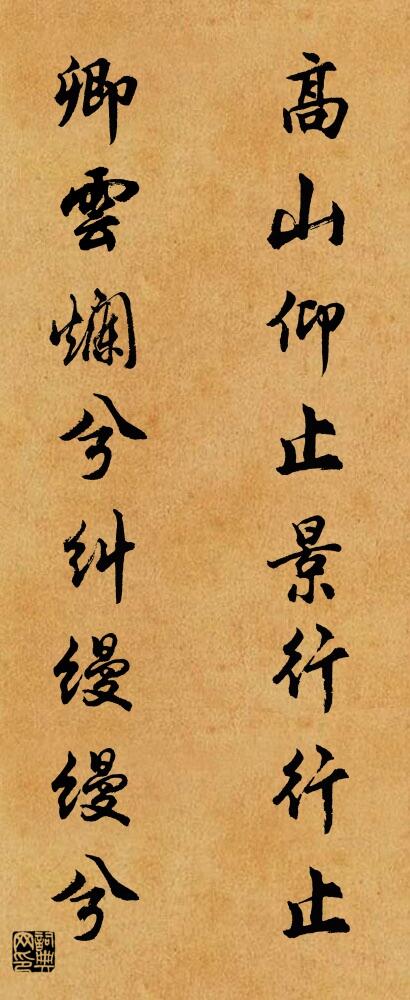 高山仰止景行行止
卿雲爛兮糾縵縵兮
詞典网印